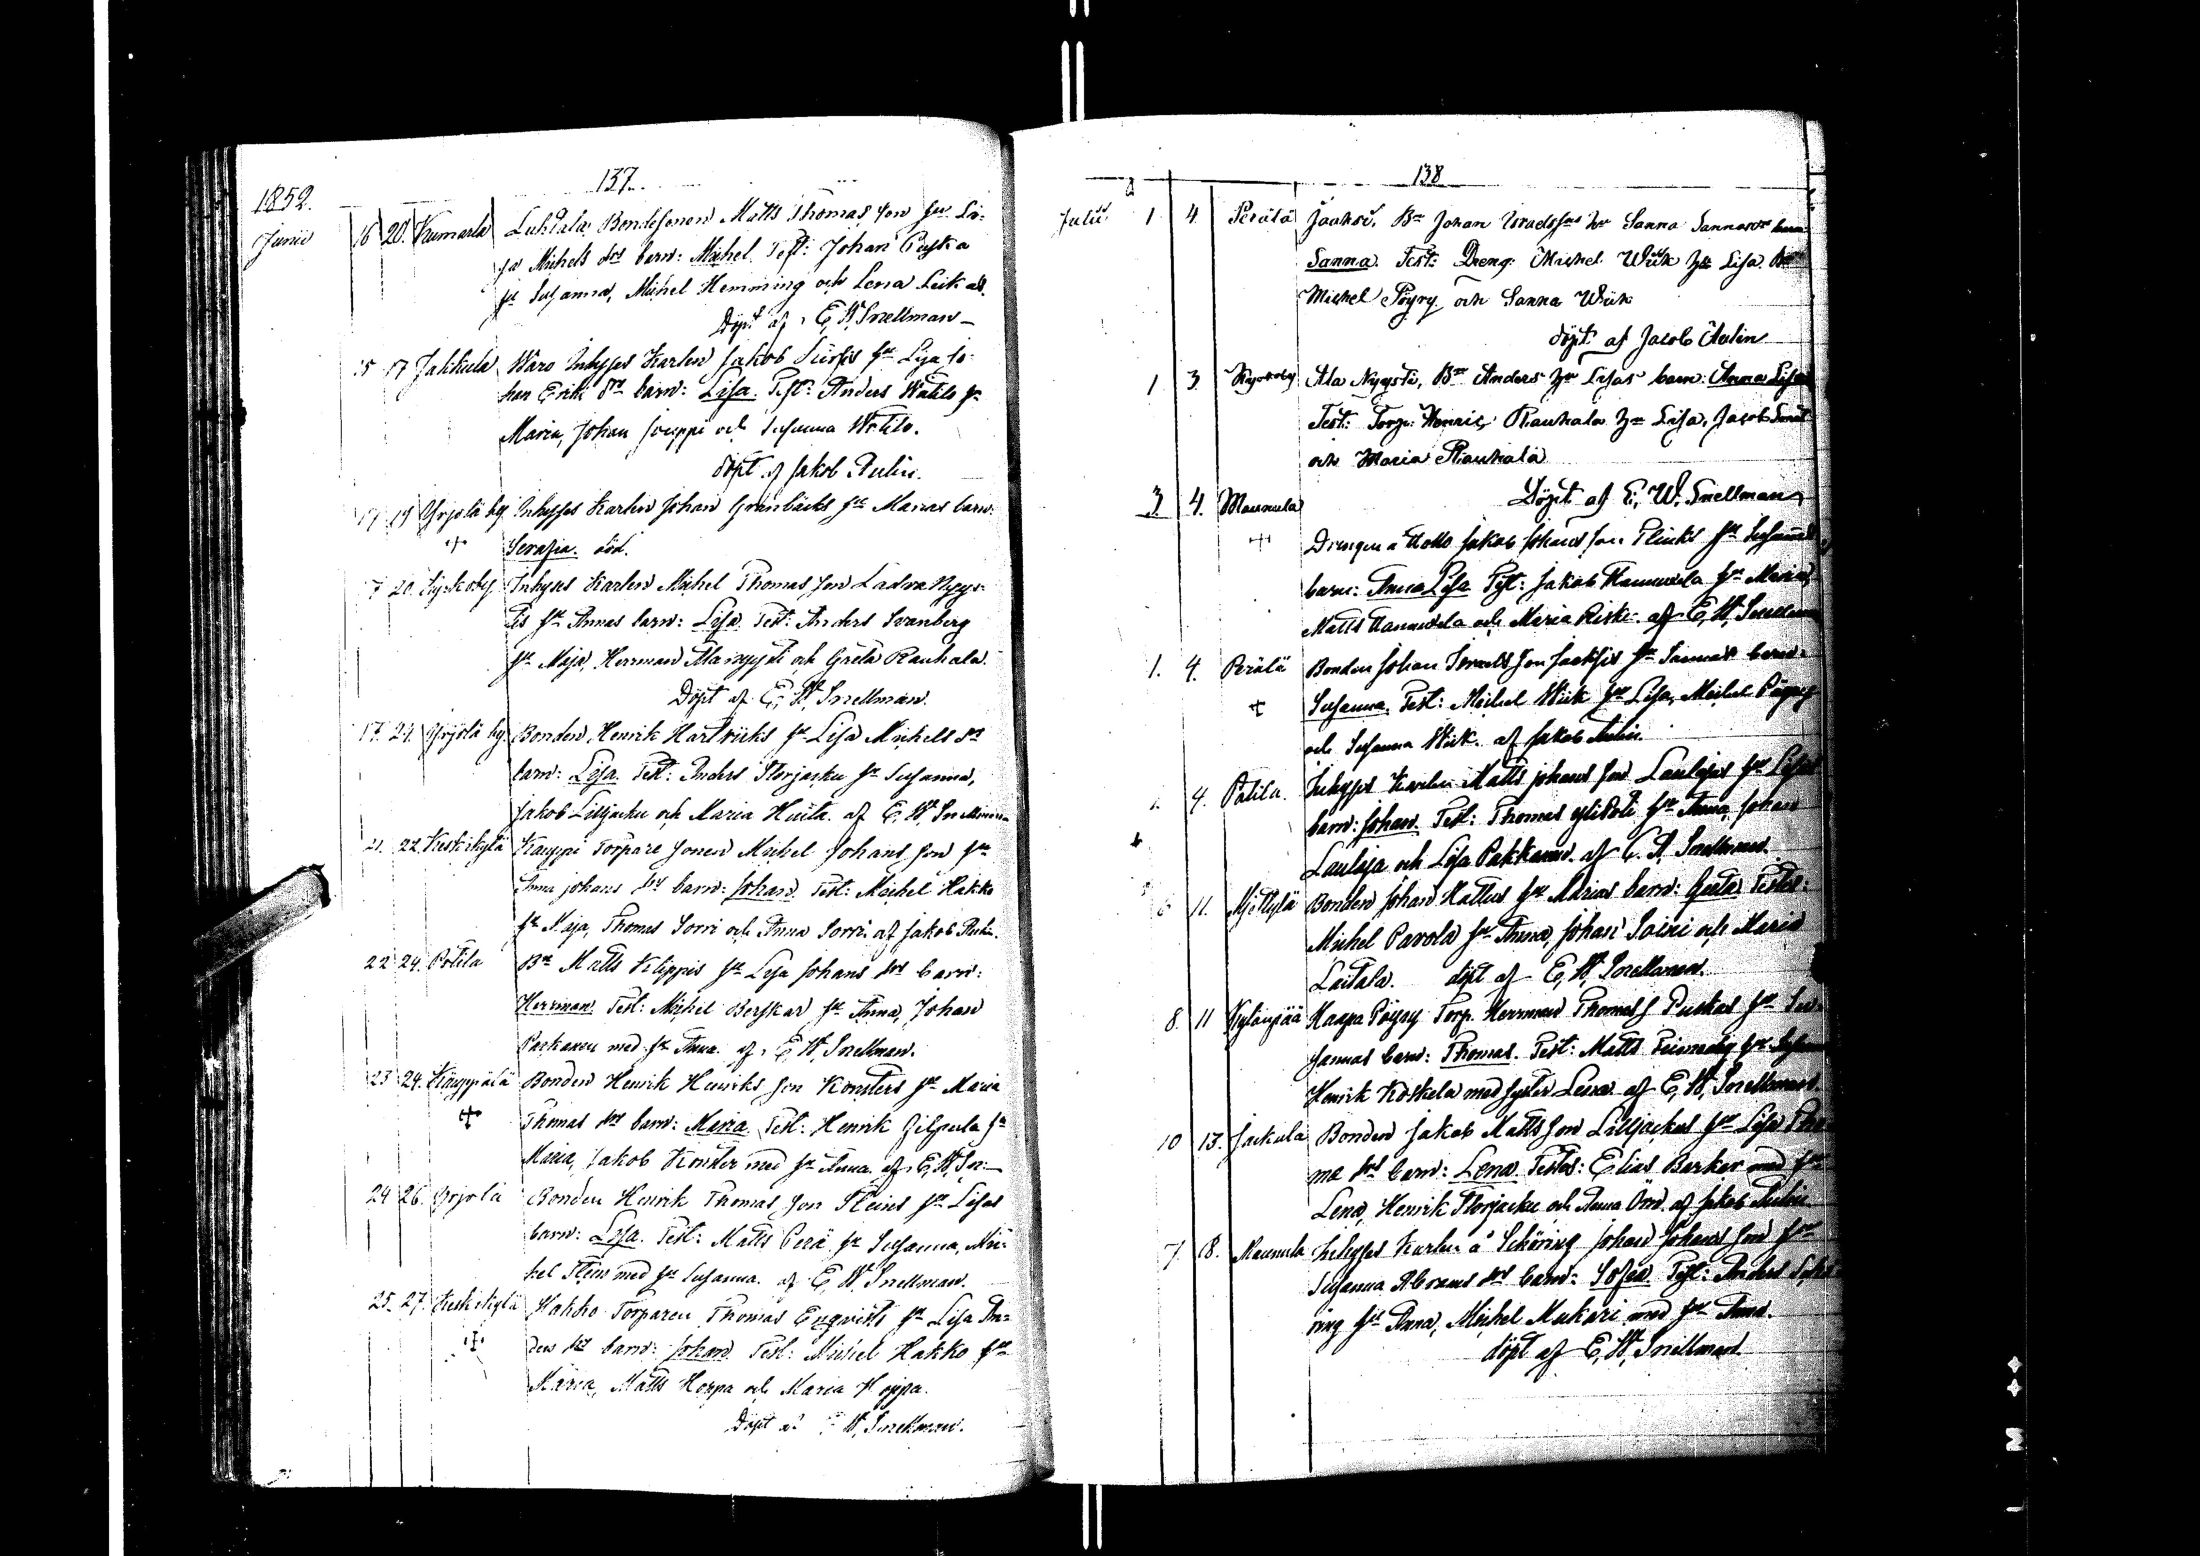 137.
1852.
Junii 16 20. Kumarla Luhtala Bondesonen Matts Thomas son hu Li-
sa Michels drs barn: Michel. Test: Johan Puska
hu Susanna, Michel Hemming och Lena Leikas.
Döpt af E. W. Snellman
15 17 Jakkula Waro Inhyses Karlen Jakob hu Lisa Jo-
han Eriks drs barn: Lisa. Test: Anders Watilo hu
Maria, Johan Jouppi och Susanna Watilo.
döpt af Jakob Aulin.
17 19 Yrjolä by Inhyses Karlen Johan Granbäcks hu Marias barn:
Serafia. död.
17 20. Kyrkoby Inhyses Karlen Michel Thomas son Ladva Nyys-
tis hu Annas barn: Lisa. Test: Anders Svanberg
hu Maja, Herrman Alanyysti och Greta Rauhala.
Döpt af E. W. Snellman.
17. 24. Yrjolä by. Bonden Henrik Hartviks hu Lisa Michels drs
barn: Lisa. Test: Anders Storjacku hu Susanna,
Jakob Lilljacku och Maria Huita. af E. W. Snellman
21. 22. Keskikylä Kauppi Torpare Sonen Michel Johans son hu
Anna Johans drs barn: Johan. Test: Michel Hakko
hu Maja, Thomas Sorri och Anna Sorri. af Jakob Aulin.
22 24. Potila Bn Matts Klippis hu Lisa Johans drs barn:
Herrman. Test: Michel Berskar hu Anna, Johan
Packanen med hu Anna. af E. W. Snellman.
23 24. Käuppälä Bonden Henrik Henriks son Konsters hu Maria
Thomas drs barn: Maria. Test: Henrik Filpula hu
Maria, Jakob Konster med hu Anna. af E. W. Sn:
24 26. Yrjolä Bonden Henrik Thomas son Steins hu Lisas
barn: Lisa. Test: Matts Perä hu Susanna, Mi-
kel Stens med hu Susanna. af E. W. Snellman.
25. 27. Keskikylä Hakko Torparen Thomas Enqvists hu Lisa An-
ders drs barn: Johan. Test: Michel Hakko hu
Maria, Matts Hoppa och Maria Hoppa.
Döpt af E. W. Snellman.
138
Julii 1 4 Perälä Jaakoi. Bn Johan Israelssons hu Sanna barn
Sanna. Test: Dreng: Michel Wiik hu Lisa. Bn
Michel Pöyry och Sanna Wiik
döpt af Jacob Aulin
1 3 Kyrkoby Ala Nyysti, Bn Anders hu Lisas barn: Anna Lisa
Test: Torp: Henric Rauhala hu Lisa, Jacob
och Maria Rauhala
Döpt af E. W. Snellman
3. 4. Mannula
Drengen å Jakob Johans son Flincks hu Susanna
barn: Anna Lisa. Test: Jakob Hannuela hu Maria,
Matts Hannuela och Maria Riski. af E. W. Snellman
1. 4. Perälä Bonden Johan Israels son Jackois hu Sannas barn:
Susanna. Test: Michel Wiik hu Lisa, Michel Pöyry
och Susanna Wiik. af Jakob Aulin.
4. Potila. Inhyses Karlen Matts Johans son Laulajas hu Lisas
barn: Johan. Test: Thomas hu Anna, Johan
Laulaja och Lisa Pakkanen. af E. W. Snellman.
6 11. Bonden Johan Hattus hu Marias barn: Greta. Testes:
Michel Parola hu Anna, Johan Soini och Maria
Laitala. döpt af E. W. Snellman.
8. 11 Kylänpää Haapa Pöyry Torp. Herrman Thomas s. Puskas hu Su-
sannas barn: Thomas. Test: Matts hu Susanna
Henrik Koskela med syster Lena. af E. W. Snellman.
10 13. Jackula Bonden Jakob Matts son Lilljackus hu Lisa Tho-
mæ drs barn: Lena. Testes: Elias Barkar med hu
Lena, Henrik Storjacku och Anna Örn. af Jakob Aulin.
7. 18. Mannula Inhyses Karlen å Siköring Johan Johans son hu
Susanna Abrams drs barn: Sofia. Test: Anders Sikö-
ring hu Anna, Michel Mukari med hu Anna.
döpt af E. W. Snellman.